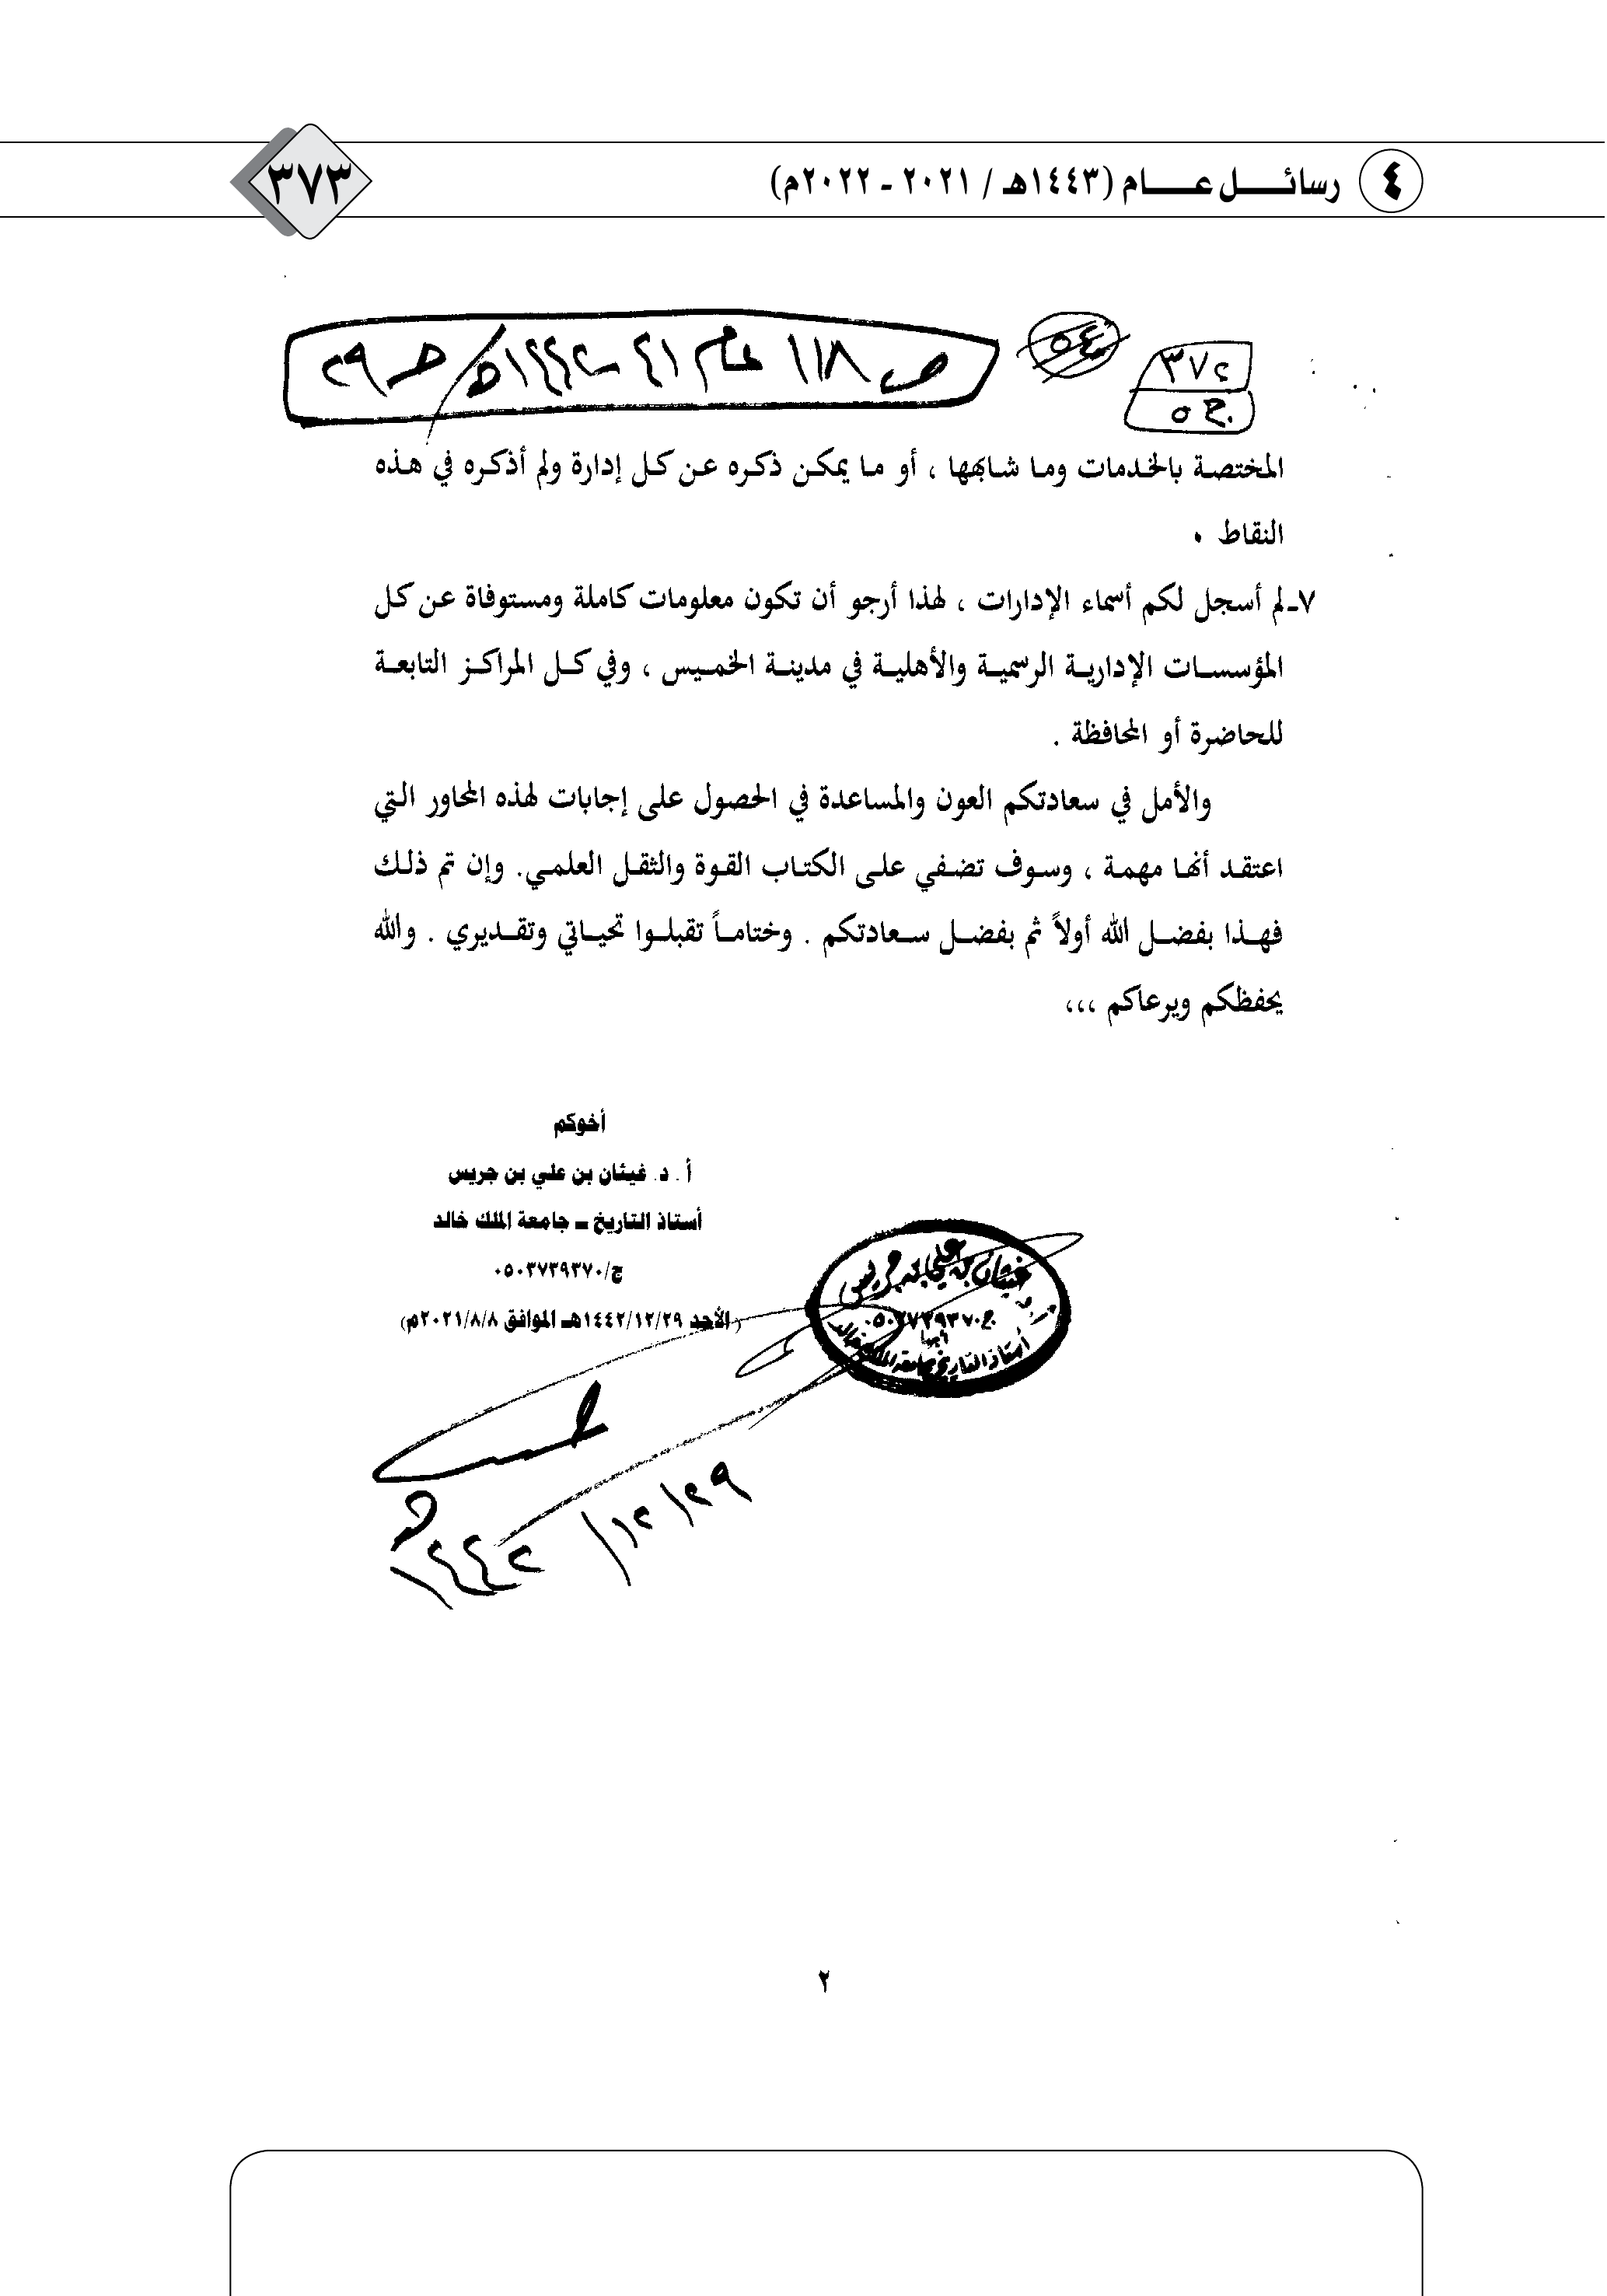 ٤ رسائـــــل عـــــام (١٤٤٣هـ / ٢٠٢١ - ٢٠٢٢م)
٣٧٣
ص ١١٨ عام ٤١ - ١٤٤٢هـ / ٢٩
٣٧٢
ج ٥
المختصة بالخدمات وما شابهها ، أو ما يمكن ذكره عن كل إدارة ولم أذكره في هذه
النقاط .
٧ـ لم أسجل لكم أسماء الإدارات ، لهذا أرجو أن تكون معلومات كاملة ومستوفاة عن كل
المؤسسات الإدارية الرسمية والأهلية في مدينة الخميس ، وفي كل المراكز التابعة
للحاضرة أو المحافظة .
والأمل في سعادتكم العون والمساعدة في الحصول على إجابات لهذه المحاور التي
اعتقد أنها مهمة ، وسوف تضفي على الكتاب القوة والثقل العلمي. وإن تم ذلك
فهذا بفضل الله أولاً ثم بفضل سعادتكم . وختاماً تقبلوا تحياتي وتقديري . والله
يحفظكم ويرعاكم ،،،
أخوكم
أ . د. غيثان بن علي بن جريس
أستاذ التاريخ ـ جامعة الملك خالد
ج/٠٥٠٣٧٣٩٣٧٠
( الأحد ١٤٤٢/١٢/٢٩هـ الموافق ٢٠٢١/٨/٨م)
غيثان بن علي بن جريس
ج ٠٥٠٣٧٣٩٣٧٠
أبها
أستاذ التاريخ بجامعة الملك خالد
٢٩ / ١٢ / ١٤٤٢هـ
٢